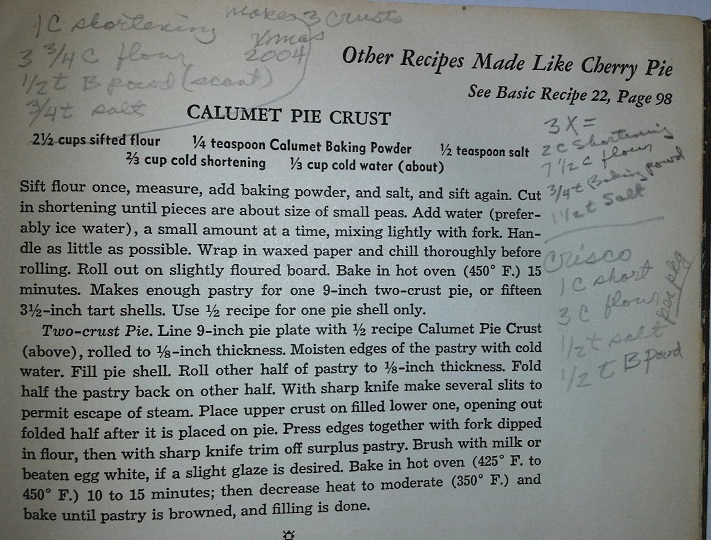 1C shortening makes 3 crusts
3 3/4 C flour Xmas
1/2 t B powd (scant) 2004
3/4 t salt
Other Recipes Made Like Cherry Pie
See Basic Recipe 22, Page 98
CALUMET PIE CRUST
2½ cups sifted flour ¼ teaspoon Calumet Baking Powder ½ teaspoon salt
⅔ cup cold shortening ⅓ cup cold water (about)
Sift flour once, measure, add baking powder, and salt, and sift again. Cut
in shortening until pieces are about size of small peas. Add water (prefer-
ably ice water), a small amount at a time, mixing lightly with fork. Han-
dle as little as possible. Wrap in waxed paper and chill thoroughly before
rolling. Roll out on slightly floured board. Bake in hot oven (450° F.) 15
minutes. Makes enough pastry for one 9-inch two-crust pie, or fifteen
3½-inch tart shells. Use ½ recipe for one pie shell only.
Two-crust Pie. Line 9-inch pie plate with ½ recipe Calumet Pie Crust
(above), rolled to ⅛-inch thickness. Moisten edges of the pastry with cold
water. Fill pie shell. Roll other half of pastry to ⅛-inch thickness. Fold
half the pastry back on other half. With sharp knife make several slits to
permit escape of steam. Place upper crust on filled lower one, opening out
folded half after it is placed on pie. Press edges together with fork dipped
in flour, then with sharp knife trim off surplus pastry. Brush with milk or
beaten egg white, if a slight glaze is desired. Bake in hot oven (425° F. to
450° F.) 10 to 15 minutes; then decrease heat to moderate (350° F.) and
bake until pastry is browned, and filling is done.
3X =
2 C Shortening
7 1/2 C flour
3/4 t Baking powd
1 1/2 t Salt
Crisco
1 C short
3 C flour
1/2 t salt
1/2 t B powd
per pkg